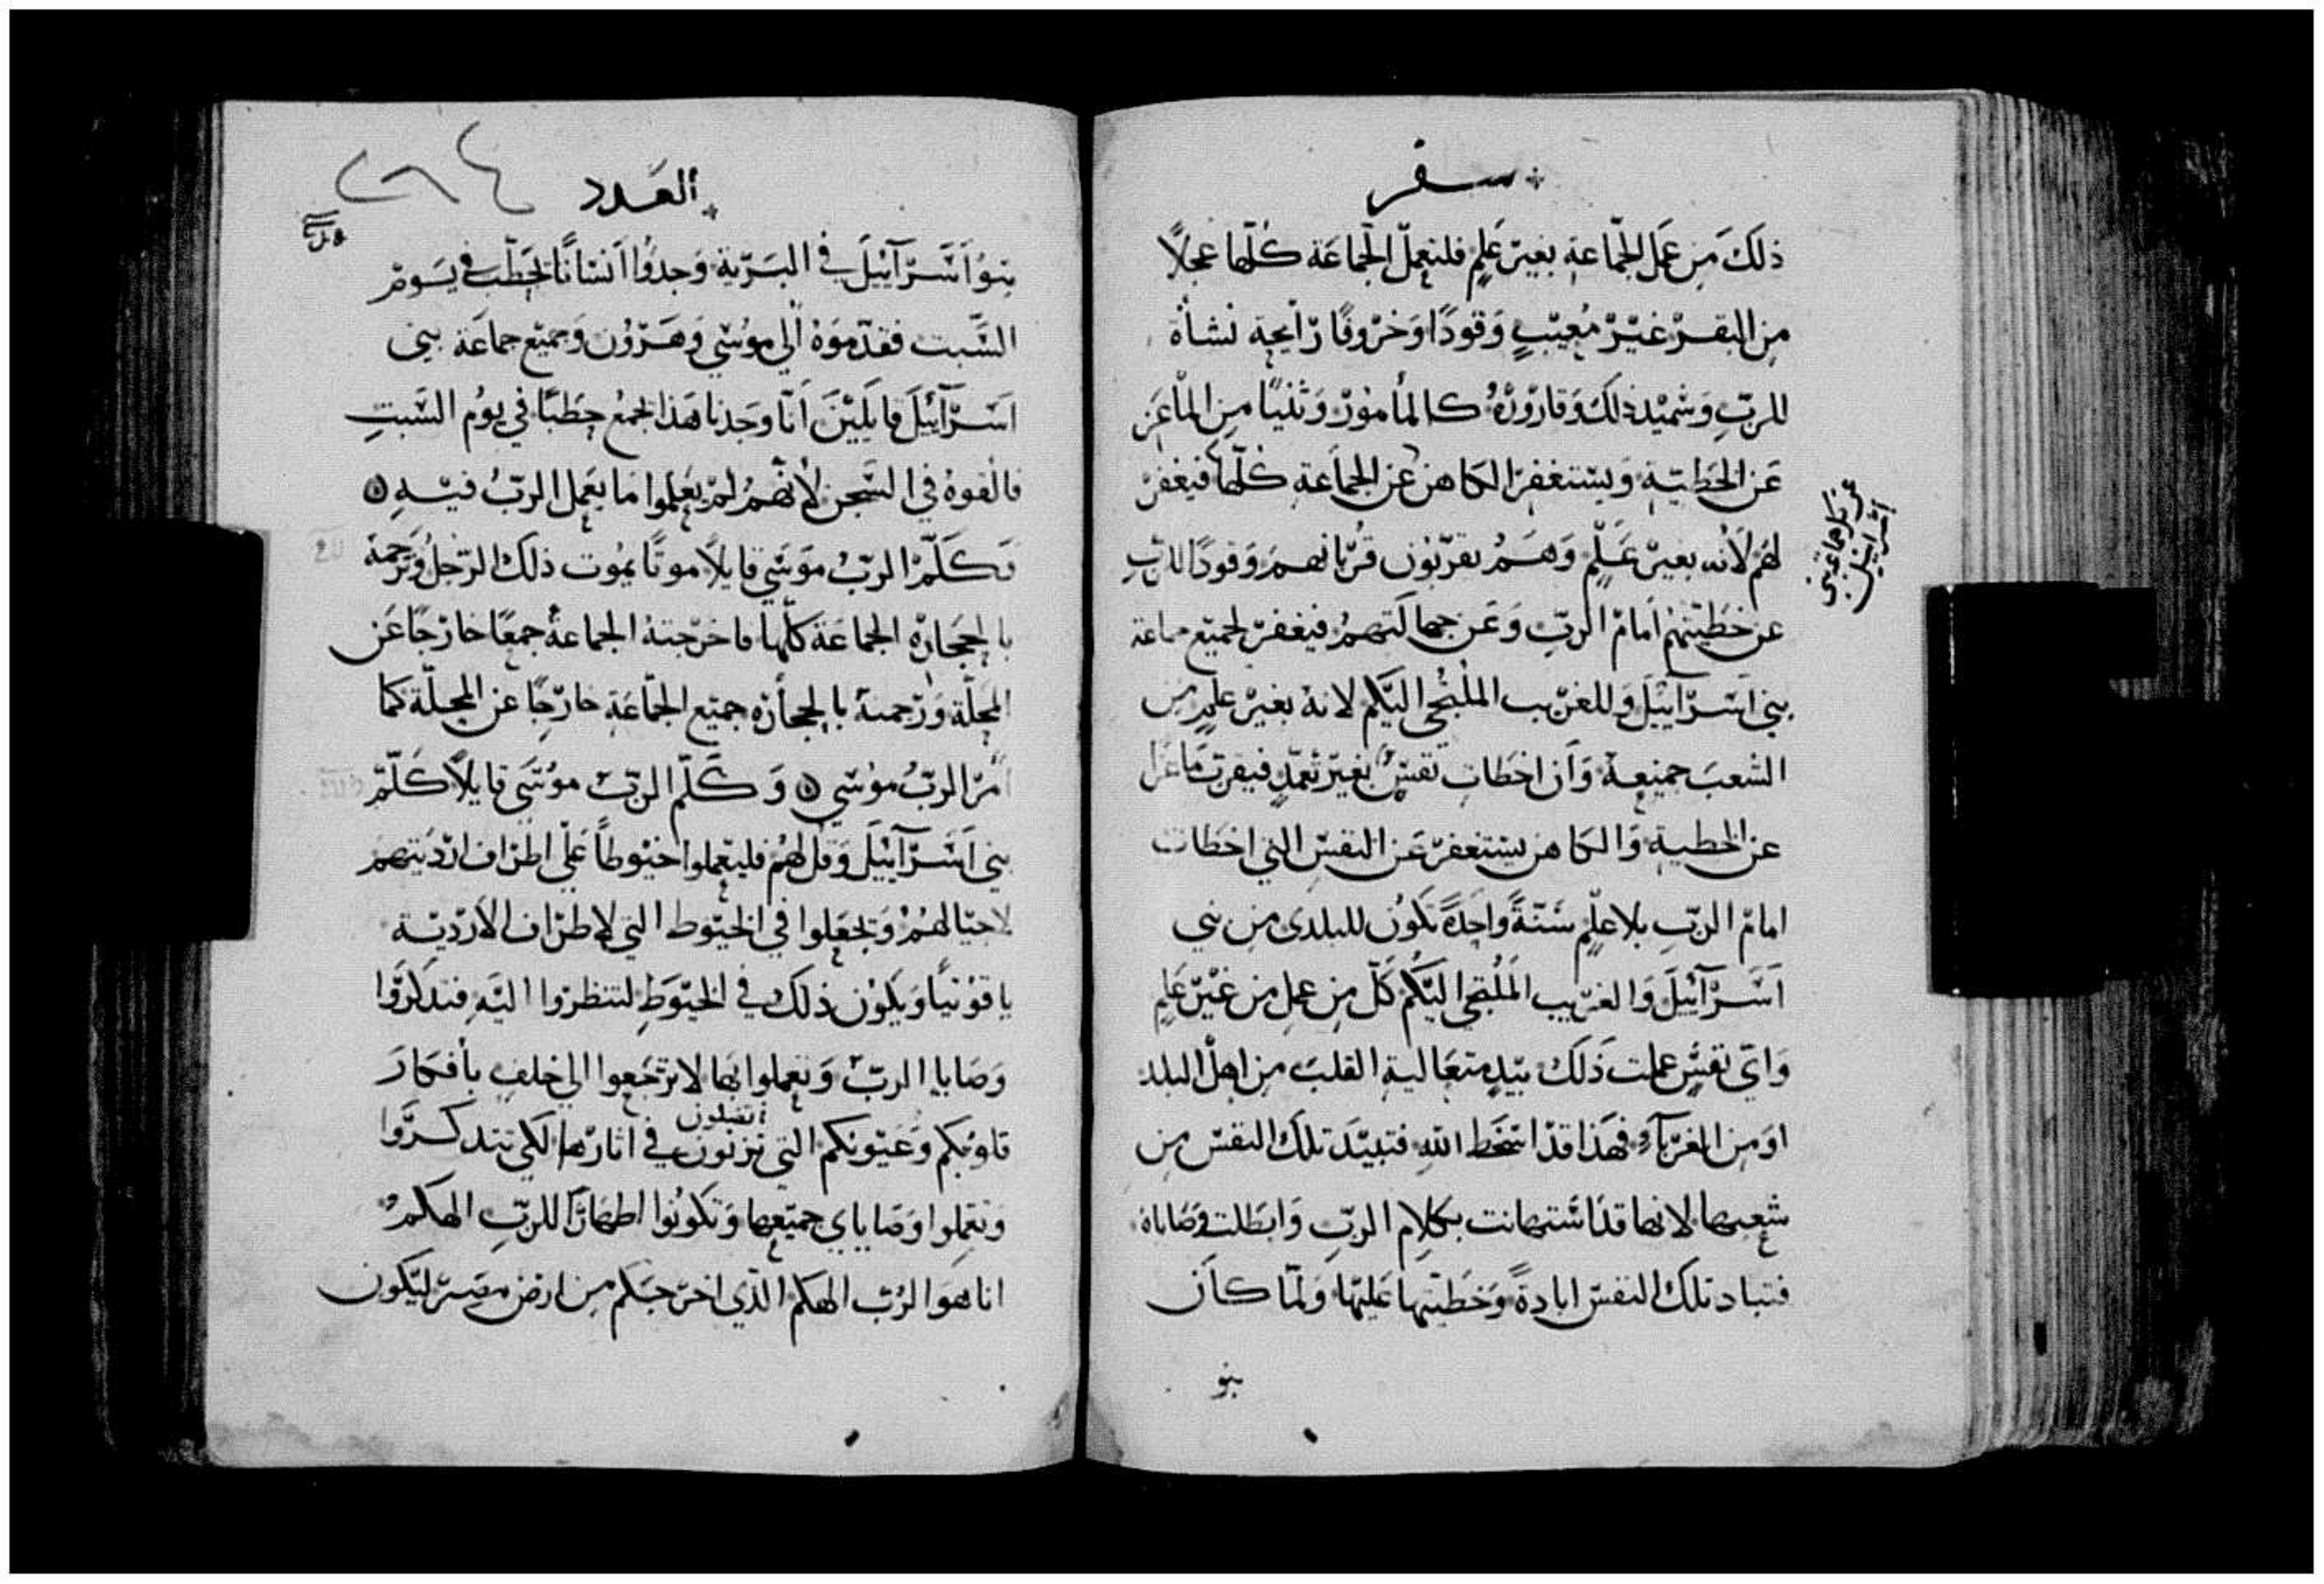 سفر
ذلك من عمل الجماعة بغير علم فلتعمل الجماعة كلها عجلاً
من البقر غير معيب وقودًا وخروفًا رايحة نشاة
للرب وشميد ذلك وقاروره كالمامور وثنيًا من الماعز
عن الخطية ويستغفر الكاهن عن الجماعة كلها فيغفر
لهم لانه بغير علم وهم يقربون قربانهم وقودًا للرب
عن خطيتهم امام الرب وعن جهالتهم فيغفر لجميع جماعة
بني اسرآييل وللغريب الملتجي اليكم لانه بغير علم من
الشعب جميعه وان اخطات نفس بغير تعمد فيقرب ماعزا
عن الخطية والكاهن يستغفر عن النفس التي اخطات
امام الرب بلا علم سنة واحدة تكون للبلدى من بني
اسرآييل والغريب الملتجي اليكم كل من عمل من غير علم
واي نفس عملت ذلك بيد متعالية القلب من اهل البلد
او من الغربآء فهذا قد اسخط الله فتبيد تلك النفس من
شعبها لانها قد اشتهانت بكلام الرب وابطلت وصاياه
فتباد تلك النفس ابادةً وخطيتها عليها ولما كان
بنو
العدد
٢٦٤
بنو اسرآييل في البرية وجدوا انسانًا يحطب في يوم
السبت فقدموه الي موسي وهرون وجميع جماعة بني
اسرآييل قايلين انا وجدنا هذا يجمع حطبًا في يوم السبت
فالقوه في السجن لانهم لم يعلموا ما يعمل الرب فيه
وكلم الرب موسي قايلاً موتًا يموت ذلك الرجل وترجمه
بالحجاره الجماعة كلها فاخرجته الجماعة جمعًا خارجًا عن
المحلة ورجمته بالحجاره جميع الجماعة خارجًا عن المحلة كما
امر الرب موسي وكلم الرب موسي قايلاً كلم
بني اسرآييل وقل لهم فليعملوا خيوطًا علي اطراف ارديتهم
لاجيالهم وتجعلوا في الخيوط التي لاطراف الاردية
ياقونتيًا ويكون ذلك في الخيوط لتنظروا اليه فتذكروا
وصايا الرب وتعملوا بها لا ترجعوا الي خلف بافكار
قلوبكم وعيونكم التي تزنون في اثارها لكي تتذكروا
وتعملوا وصاياي جميعها وتكونوا اطهارًا للرب الهكم
انا هو الرب الهكم الذي اخرجكم من ارض مصر ليكون